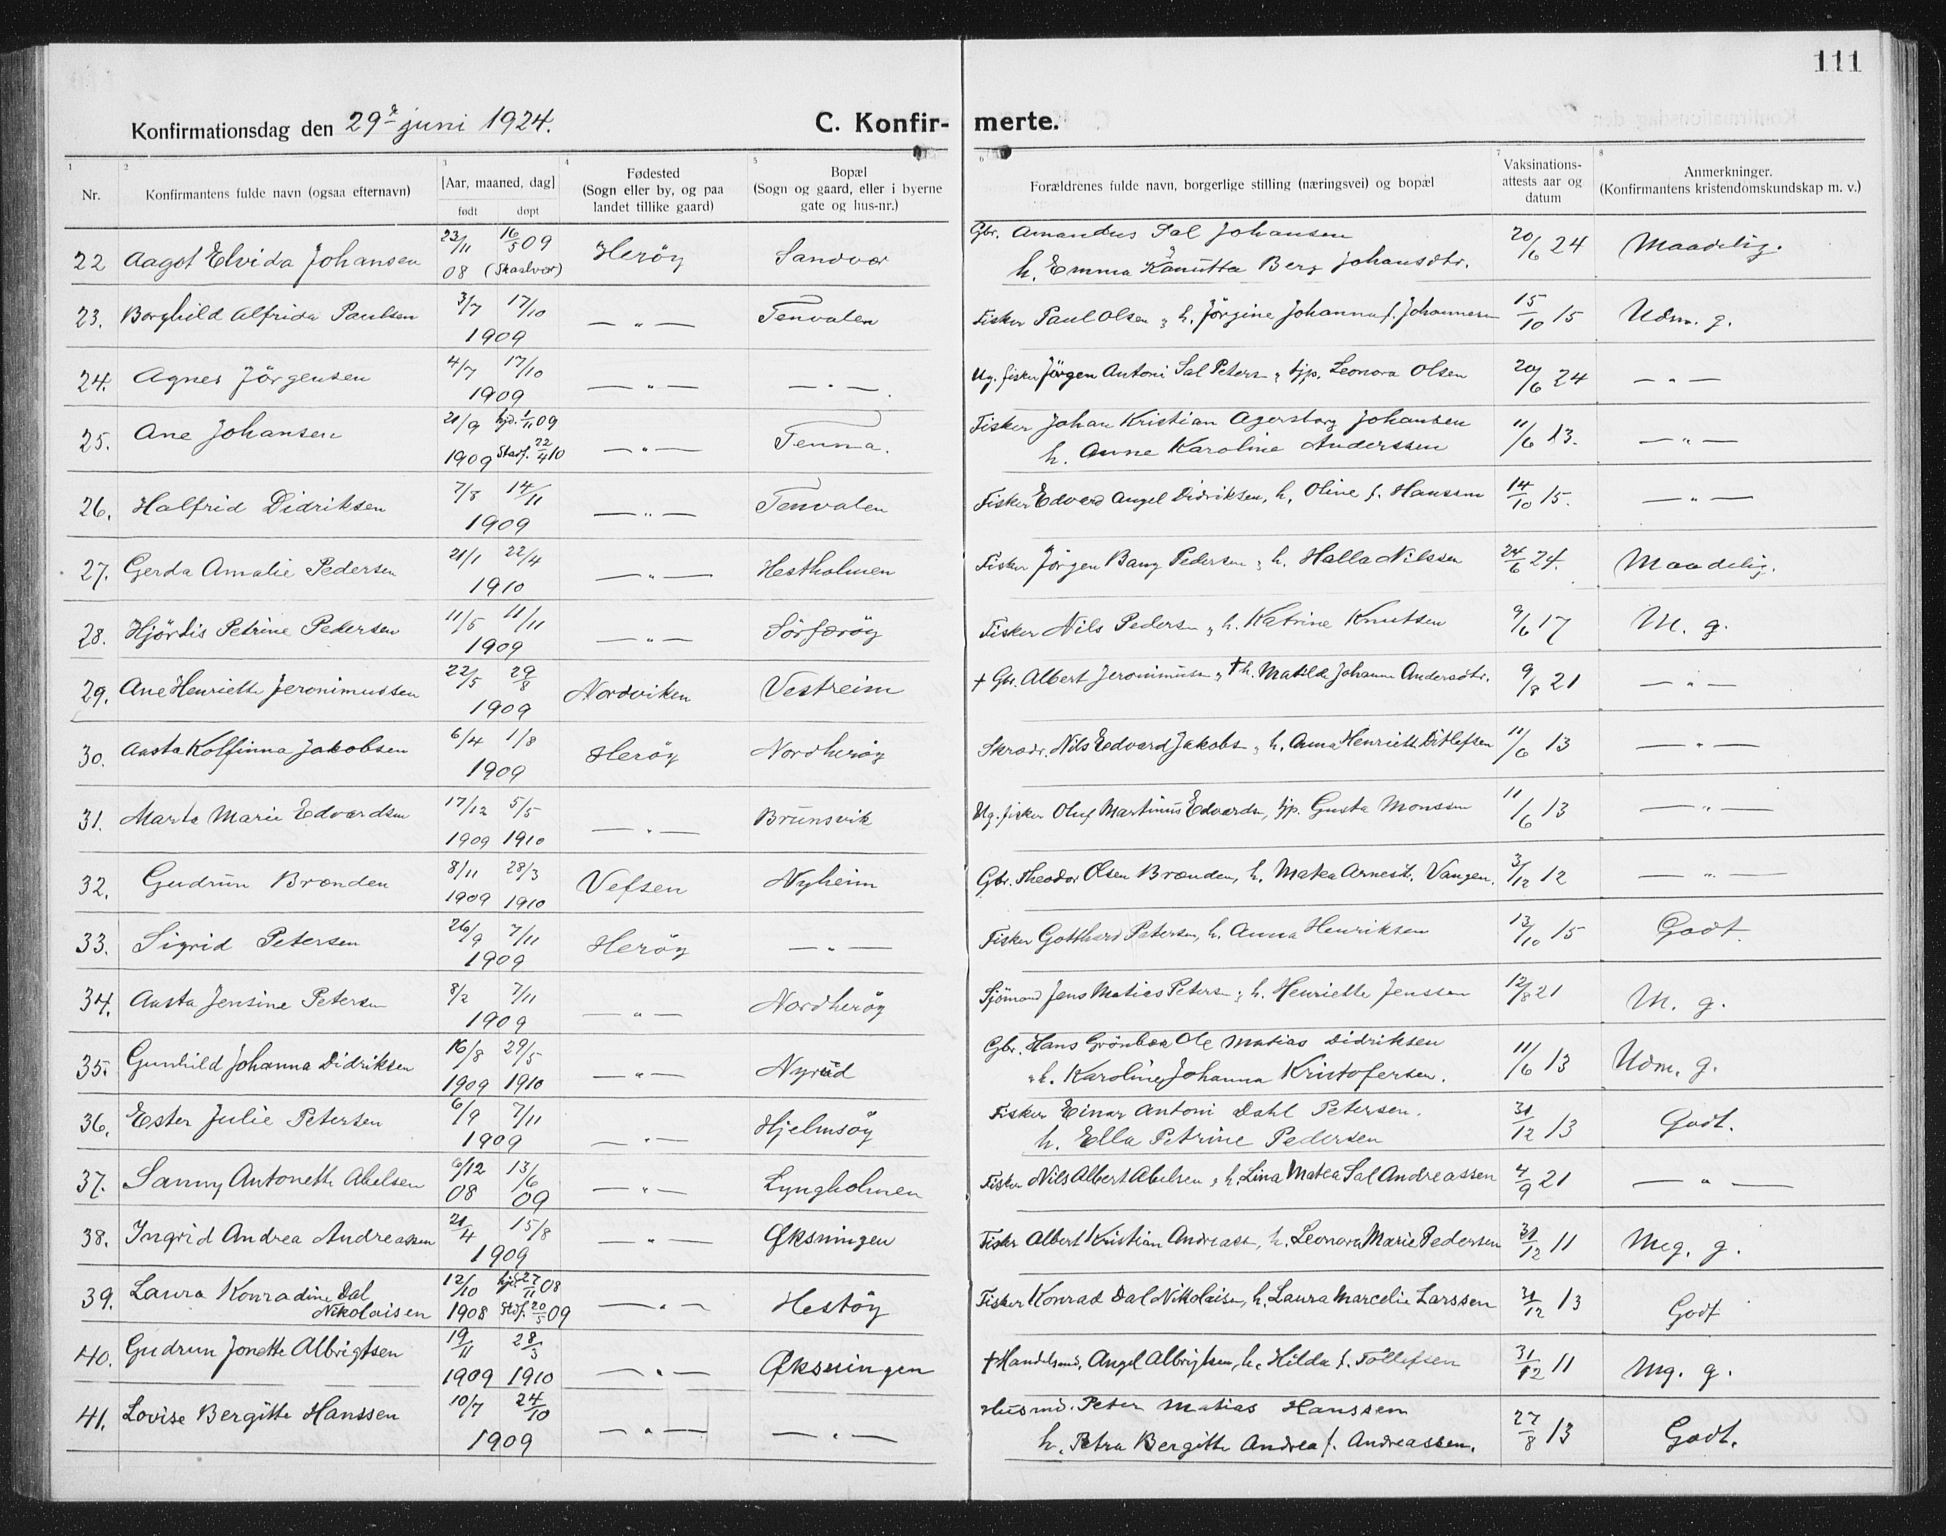 111
Konfirmationsdag den 29de juni 1924. C. Konfirmerte.
1 2 3 4 5 6 7 8
Nr. Konfirmantens fulde navn (ogsaa efternavn) [Aar, maaned, dag] født døpt Fødested (Sogn eller by, og paa landet tillike gaard) Bopæl (Sogn og gaard, eller i byerne gate og hus-nr.) Forældrenes fulde navn, borgerlige stilling (næringsvei) og bopæl Vaksinations-attests aar og datum Anmerkninger. (Konfirmantens kristendomskundskap m. v.)
22 Aagot Elvida Johansen 23/11 08 16/5 09 (Skaalvær) Herøy Sandvær Gbr. Amandus Sal Johansen & h. Emma Kanutta Berg Johansdtr. 20/6 24 Maadelig.
23. Borghild Alfrida Paulsen 3/7 17/10 1909 — " — Tenvalen Fisker Paul Olsen & h. Jörgine Johanna f. Johannesen 15/10 15 Udm. g.
24. Agnes Jörgensen 4/7 17/10 1909 — " — — " — Ug. fisker Jörgen Antoni Sal Petersen & tjp. Leonora Olsen 20/6 24 — " —
25. Ane Johansen 21/9 1909 hjd. 1/11 09 Stadf. 22/4 10 — " — Tenna. Fisker Johan Kristian Agersborg Johansen h. Anne Karoline Anderssen 11/6 13. — " —
26. Halfrid Didriksen 7/8 14/11 1909 — " — Tenvalen Fisker Edvard Angel Didriksen, h. Oline f. Hanssen 14/10 15. — " —
27. Gerda Amalie Pedersen 21/1 22/4 1910 — " — Hestholmen Fisker Jörgen Bang Pedersen & h. Halla Nilssen 24/6 24. Maadelig.
28. Hjördis Petrine Pedersen 11/5 11/11 1909 — " — Sörfæröy Fisker Nils Pedersen & h. Katrine Knutsen 9/6 17 M. g.
29. Ane Henriette Jeronimussen 22/5 29/8 1909 Nordviken Vestreim † Gbr. Albert Jeronimusen & † h. Matilde Johanna Andersdtr. 9/8 21 — " —
30. Aasta Kolfinna Jakobsen 6/4 1/8 1909 Heröy Nordheröy Skrædr. Nils Edvard Jakobsen & h. Anna Henriette Ditlefsen 11/6 13 — " —
31. Marta Marie Edvardsen 17/12 1909 5/5 1910 — " — Brunsvik Ug. fisker Oluf Martinus Edvardsen, tjp. Gusta Monssen 11/6 13 — " —
32. Gudrun Brænden 8/11 1909 28/3 1910 Vefsen Nyheim Gbr. Theodor Olsen Brænden, h. Matea Arnest. Vangen. 3/12 12 — " —
33. Sigrid Petersen 26/9 7/11 1909 Heröy — " — Fisker Gotthard Petersen, h. Anna Henriksen 13/10 15 Godt.
34. Aasta Jensine Petersen 8/2 7/11 1909 — " — Nordheröy Sjömand Jens Matias Petersen & h. Henriette Jenssen 12/8 21 M. g.
35. Gunhild Johanna Didriksen 16/8 1909 29/5 1910 — " — Nyrud Gbr. Hans Grönbæk Ole Matias Didriksen & h. Karoline Johanna Kristofersen. 11/6 13 Udm. g.
36. Ester Julie Petersen 6/9 7/11 1909 — " — Hjelmsöy Fisker Einar Antoni Dahl Petersen. h. Ella Petrine Pedersen 31/12 13 Godt.
37. Sanny Antonette Abelsen 6/12 08 13/6 09 — " — Lyngholmen Fisker Nils Albert Abelsen & h. Lina Matea Sal Andreassen 4/9 21 — " —
38. Ingrid Andrea Andreassen 21/4 15/8 1909 — " — Øksningen Fisker Albert Kristian Andreass., h. Leonora Marie Pedersen 31/12 11 Meg. g.
39. Laura Konradine Dal Nikolaisen 12/10 1908 hjd. 27/11 08 Stdf. 20/5 09 — " — Hestöy Fisker Konrad Dal Nikolaisen, h. Laura Marcelie Larssen 31/12 13 Godt
40. Gudrun Jonette Albrigtsen 19/11 1909 28/3 1910 — " — Øksningen † Handelsmd. Angel Albrigtsen, h. Hilda f. Tollefsen 31/12 11 Mg. g.
41. Lovise Bergitte Hanssen 10/7 24/10 1909 — " — — " — Husmd. Peter Matias Hanssen h. Petra Bergitte Andrea f. Andreassen. 27/8 13 Godt.